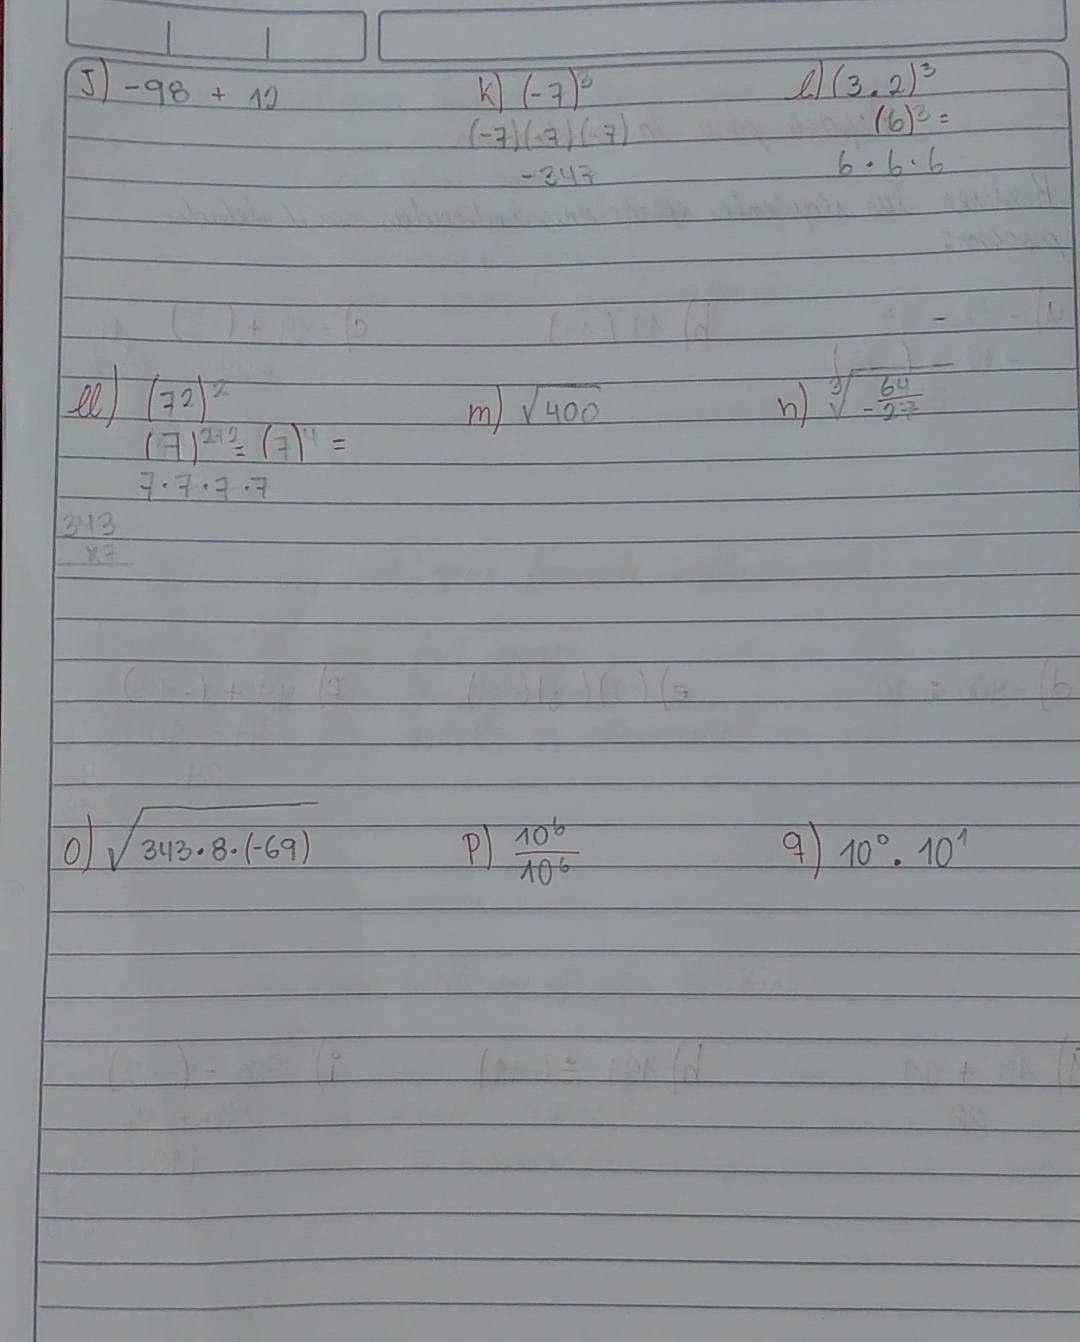 J) -98 + 12
K) (-7)³
(-7)(-7)(-7)
-343
l) (3.2)³
(6)³ =
6 · 6 · 6
ll) (72)²
(7)²⁺² = (7)⁴ =
7·7·7·7
343
x7
m) √400
n) ³√-64/27
o) √343·8·(-69)
p) 10⁶/10⁶
q) 10⁰ · 10¹